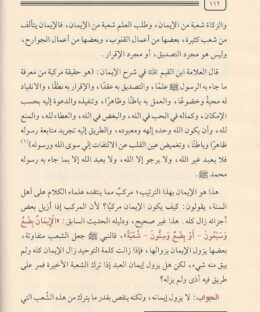 ١١٢
والزكاة شعبة من الإيمان، وطلب العلم شعبة من الإيمان، فالإيمان يتألف
من شعب كثيرة، بعضها من أعمال القلوب، وبعضها من أعمال الجوارح،
وليس هو مجرد التصديق، أو مجرد الإقرار.
قال العلامة ابن القيم في شرح الإيمان: «هو حقيقة مركبة من معرفة
ما جاء به الرسول ﷺ علمًا، والتصديق به عقدًا، والإقرار به نطقًا، والانقياد
له محبة وخضوعًا، والعمل به باطنًا وظاهرًا، وتنفيذه والدعوة إليه بحسب
الإمكان، وكماله في الحب في الله، والبغض في الله، والعطاء لله، والمنع
لله، وأن يكون الله وحده إلهه ومعبوده، والطريق إليه تجريد متابعة رسوله
ظاهرًا وباطنًا، وتغميض عين القلب عن الالتفات إلى سوى الله ورسوله(١)
فلا يعبد غير الله، ولا يرجو إلا الله، ولا يعبد الله إلا بما جاء به رسوله
محمد ﷺ.
هذا هو الإيمان بهذا الترتيب؛ مركبٌ مما ينتقده علماء الكلام على أهل
السنة، يقولون: كيف يكون الإيمان مركبًا؟ لأن المركب إذا أزيل بعض
أجزائه زال كله. هذا غير صحيح، ودليله الحديث السابق: «الْإِيمَانُ بِضْعٌ
وَسَبْعُونَ - أَوْ بِضْعٌ وَسِتُّونَ - شُعْبَةً»، فالنبي ﷺ جعل الشعب متفاوتة،
بعضها يزول الإيمان بزوالها، فإذا زالت كلمة التوحيد زال الإيمان كله ولم
يبق منه شيء، لكن هل يزول إيمان العبد إذا ترك الشعبة الأخيرة فمر على
طريق فيه أذى ولم يزله؟
الجواب: لا يزول إيمانه، ولكنه ينقص بقدر ما يترك من هذه الشُّعب التي